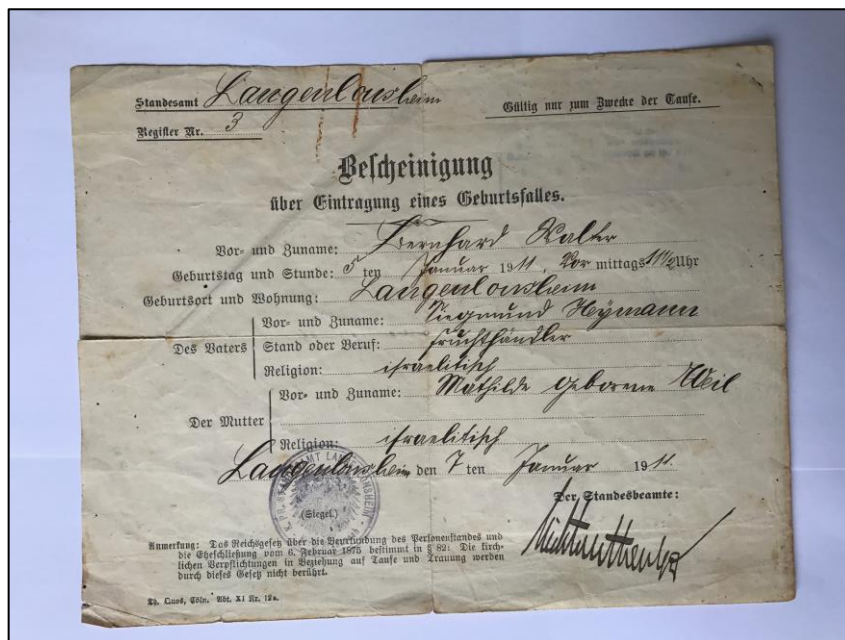 Standesamt Langenlonsheim
Gültig nur zum Zwecke der Taufe.
Register Nr. 3
Bescheinigung
über Eintragung eines Geburtsfalles.
Vor- und Zuname: Bernhard Walter
Geburtstag und Stunde: 5 ten Januar 1911, Vor mittags 11 1/2 Uhr
Geburtsort und Wohnung: Langenlonsheim
Des Vaters
Vor- und Zuname: Siegmund Heymann
Stand oder Beruf: Fruchthändler
Religion: israelitisch
Der Mutter
Vor- und Zuname: Mathilde geborene Weil
Religion: israelitisch
Langenlonsheim den 7 ten Januar 1911.
Der Standesbeamte:
(Siegel.)
Anmerkung: Das Reichsgesetz über die Beurkundung des Personenstandes und
die Eheschließung vom 6. Februar 1875 bestimmt in § 82: Die kirch-
lichen Verpflichtungen in Beziehung auf Taufe und Trauung werden
durch dieses Gesetz nicht berührt.
Cöln. Abt. XI Nr. 12a.